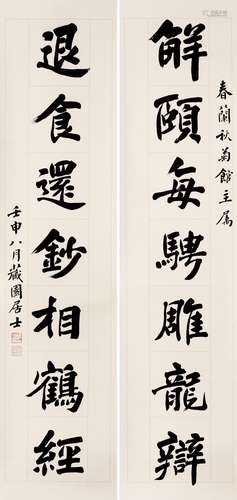 春蘭秋菊館主屬
解頤每騁雕龍辯
退食還鈔相鶴經
壬申八月藏園居士